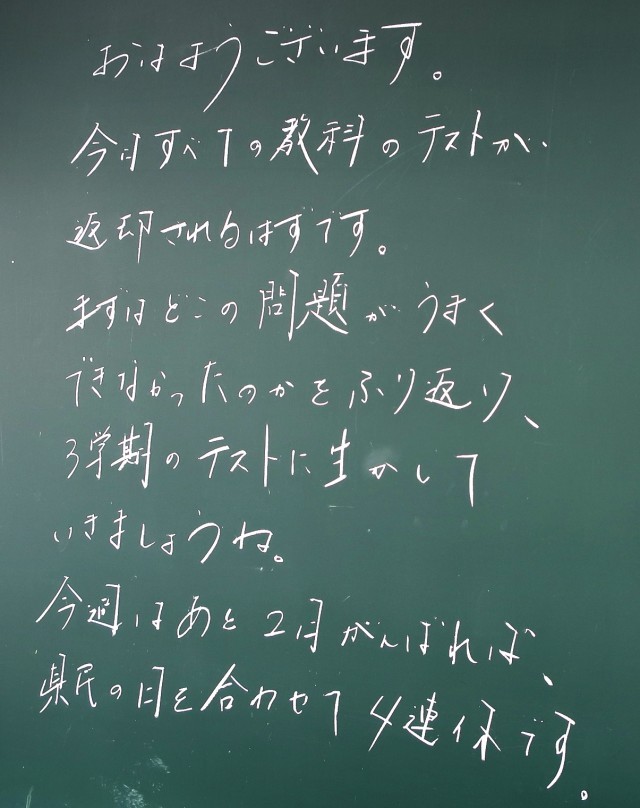 おはようございます。
今日すべての教科のテストが、
返却されるはずです。
まずはどこの問題がうまく
できなかったのかをふり返り、
3学期のテストに生かして
いきましょうね。
今週はあと2日がんばれば、
県民の日を合わせて4連休です。